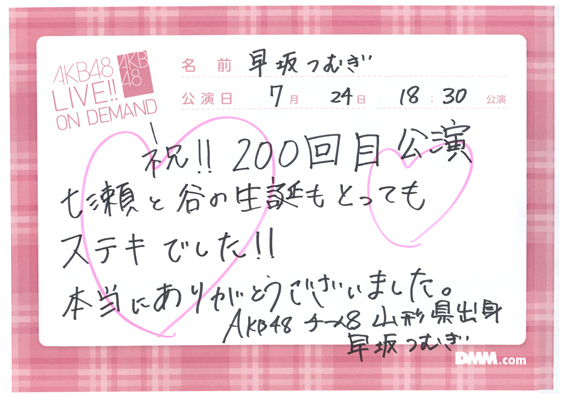 AKB48
LIVE!!
ON DEMAND
AKB
48
名前 早坂つむぎ
公演日 7月 24日 18:30 公演
祝!! 200回目公演
七瀬と谷の生誕もとっても
ステキでした!!
本当にありがとうございました。
AKB48 チーム8 山形県出身
早坂つむぎ
DMM.com